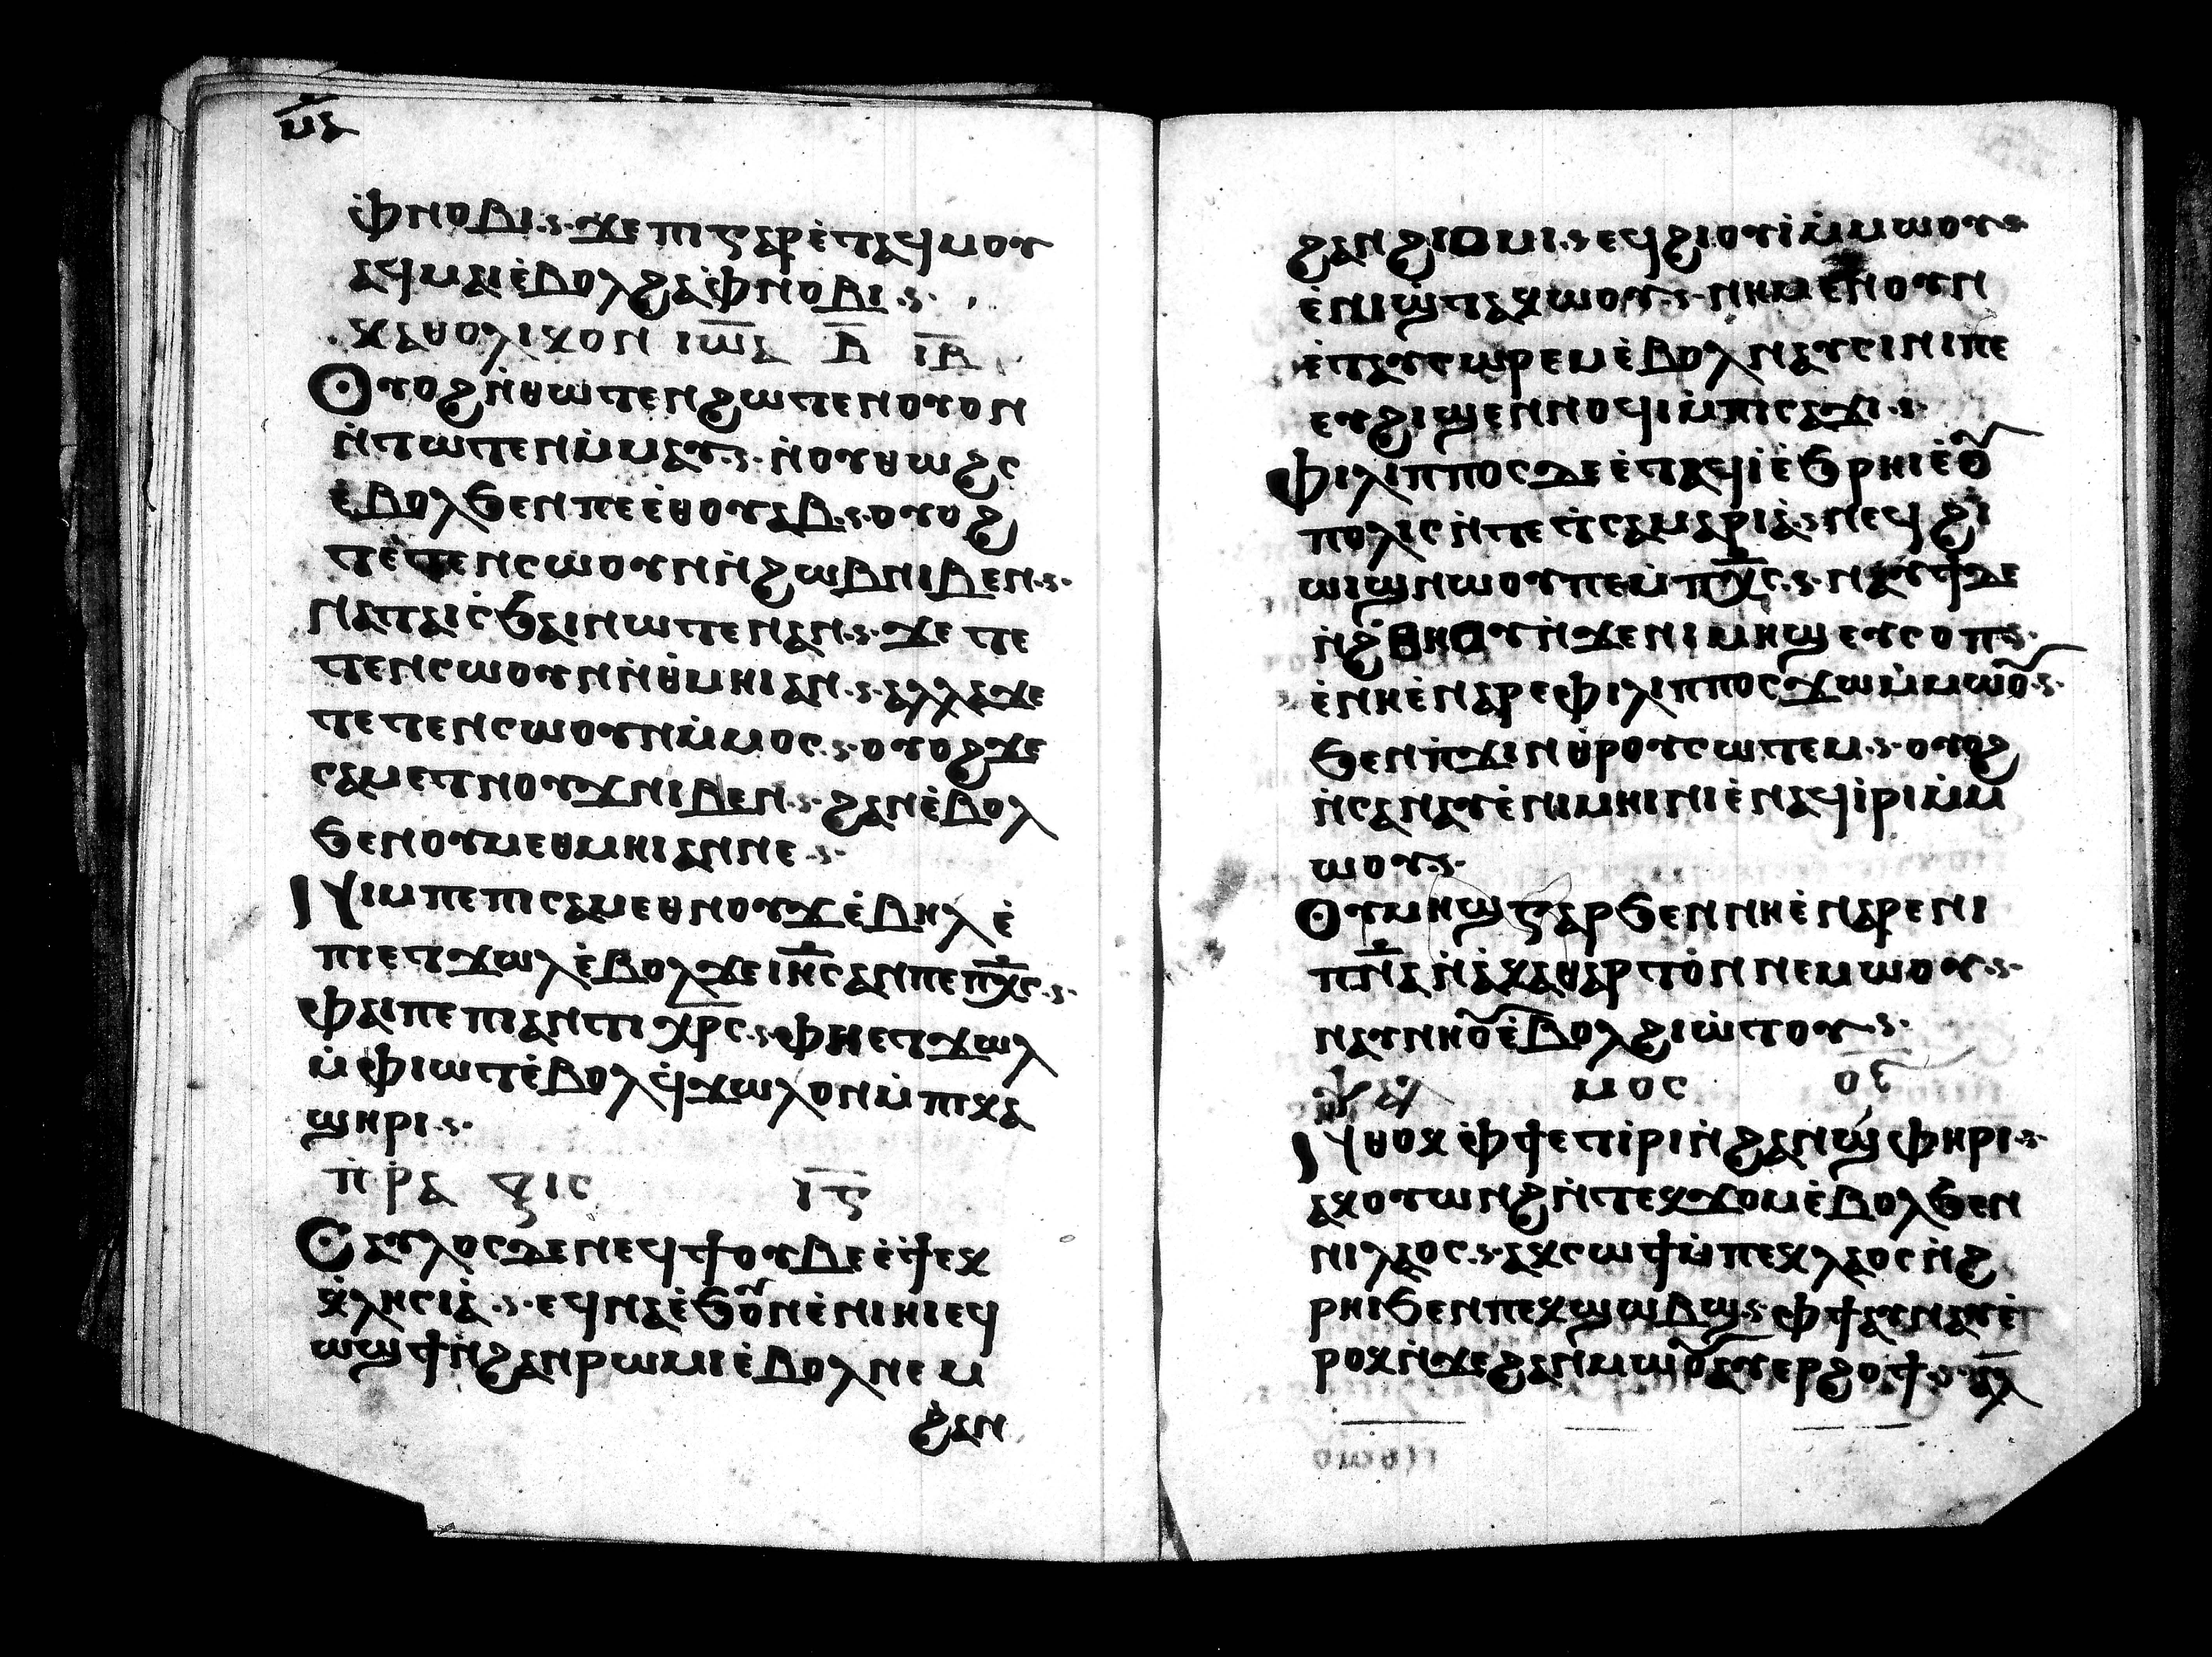 ⲙⲁ
ⲉ̀ⲫⲛⲟⲃⲓ ⲝⲉ ⲡⲓⲅⲁⲣ ⲉ̀ⲧⲁϥⲙⲟⲩ
ⲁϥⲙⲁⲓ ⲉ̀ⲃⲟⲗϩⲁ ⲫ̀ⲛⲟⲃⲓ
ⲕⲁⲑⲟⲗⲓⲕⲟⲛ ⲓⲱ̅ⲁ ⲃ̅ ⲓⲃ̅
Ⲟⲩⲟϩ ⲛ̀ⲑⲱⲧⲉⲛ ϩⲱⲧⲉⲛ ⲟⲩⲟⲛ
ⲛ̀ⲧⲱⲧⲉⲛ ⲙ̀ⲙⲁⲩ ⲛ̀ⲟⲩⲑⲱϩⲥ
ⲉ̀ⲃⲟⲗϧⲉⲛ ⲡⲉⲉ̀ⲑⲟⲩⲁⲃ ⲟⲩⲟϩ
ⲧⲉⲧⲉⲛⲥⲱⲟⲩⲛ ⲛ̀ϩⲱⲃ ⲛⲓⲃⲉⲛ
ⲛⲁⲧⲁⲓⲥ̀ϧⲁⲓ ⲛⲱⲧⲉⲛ ⲁⲛ ϫⲉ ⲧⲉ
ⲧⲉⲛⲥⲱⲟⲩⲛ ⲛ̀ⲑ̀ⲙⲏⲓ ⲁⲛ ⲁⲗⲗⲁ ϫⲉ
ⲧⲉⲧⲉⲛⲥⲱⲟⲩⲛ ⲙ̀ⲙⲟⲥ ⲟⲩⲟϩ ϫⲉ
ⲥⲁⲙⲉⲧⲛⲟⲩϫ ⲛⲓⲃⲉⲛ ϩⲁⲛⲉ̀ⲃⲟⲗ
ϧⲉⲛ ⲟⲩⲙⲉⲑⲙⲏⲓ ⲁⲛ ⲛⲉ
Ⲛⲓⲙ ⲡⲉ ⲡⲓⲥⲁⲙⲉⲑⲛⲟⲩϫ ⲉ̀ⲃⲏⲗ ⲉ̀
ⲡⲓⲉⲧϫⲱⲗ ⲉ̀ⲃⲟⲗ ϫⲉ ⲓⲏ̅ⲥ ⲁⲛ ⲡⲉ ⲡⲭ̅ⲥ
ⲫⲁⲓ ⲡⲉ ⲡⲓⲁⲛⲧⲓⲭⲣ̅ⲥ ⲫⲏⲉⲧϫⲱⲗ
ⲙ̀ⲫⲓⲱⲧ ⲉ̀ⲃⲟⲗ ϥ̀ϫⲱⲗ ⲟⲛ ⲙ̀ⲡⲓⲕⲁ
ϣⲏⲣⲓ
ⲡ̀ⲣⲁ ⲝⲓⲥ ⲓⲋ̅
Ⲥⲁⲩⲗⲟⲥ ⲇⲉ ⲛⲉϥϯⲟⲩⲃⲉ ⲉ̀ϯⲉⲕ
ⲕ̀ⲗⲏⲥⲓⲁ̀ ⲉϥⲛⲁ ⲉ̀ϧⲟⲩⲛ ⲉ̀ⲛⲓⲏⲓ ⲉϥ
ⲱϣϯ ⲛ̀ϩⲁⲛⲣⲱⲙⲓ ⲉ̀ⲃⲟⲗ ⲛⲉⲙ
ϩⲁⲛ
ϩⲁⲛϩⲓⲟⲙⲓ ⲉϥϩⲓⲟⲩⲓ̀ ⲙ̀ⲙⲱⲟⲩ
ⲉ̀ⲛⲓϣⲧⲁⲕⲱⲟⲩ ⲛⲏⲙⲉⲛⲟⲩⲛ
ⲉ̀ⲧⲁⲩⲥⲱⲣⲉⲙ ⲉ̀ⲃⲟⲗ ⲛⲁⲩⲥⲓⲛⲓ ⲡⲉ
ⲉⲩϩⲓϣⲉⲛⲛⲟⲩϥⲓ ⲙ̀ⲡⲓⲥⲁϫⲓ
ⲫⲓⲗⲓⲡⲡⲟⲥ ⲇⲉ ⲉ̀ⲧⲁϥⲓ̀ ⲉ̀ϧⲣⲏⲓ ⲉ̀ⲟⲩ
ⲡⲟⲗⲓⲥ ⲛ̀ⲧⲉ ϯⲥⲁⲙⲁⲣⲓⲁ̀ ⲛⲉϥϩⲓ
ⲱⲓϣ ⲛⲱⲟⲩ ⲡⲉ ⲙ̀ⲡⲭ̅ⲥ ⲛⲁⲩϯ ⲇⲉ
ⲛ̀ϩⲑⲏⲟⲩ ⲛ̀ϫⲉ ⲛⲓⲙⲏϣ ⲉⲩⲥⲟⲡ
ⲉ̀ⲛⲏⲉ̀ⲛⲁⲣⲉ ⲫⲓⲗⲓⲡⲡⲟⲥ ϫⲱ ⲙ̀ⲙⲱⲟⲩ
ϧⲉⲛ ⲡ̀ϫⲓⲛⲑ̀ⲣⲟⲩⲥⲱⲧⲉⲙ ⲟⲩⲟϩ
ⲛ̀ⲥⲁⲛⲁⲩ ⲉ̀ⲛⲓⲙⲏⲓⲛⲓ ⲉ̀ⲛⲁϥⲓ̀ⲣⲓ ⲙ̀ⲙ
ⲱⲟⲩ
Ⲟⲩⲙⲏϣ ⲅⲁⲣ ϧⲉⲛ ⲛⲏⲉ̀ⲛⲁⲣⲉ ⲛⲓ
ⲡⲛ̅ⲁ ⲛ̀ⲁ̀ⲕⲁⲑⲁⲣⲧⲟⲛ ⲛⲉⲙⲱⲟⲩ
ⲛⲁⲩⲛⲏⲟⲩ ⲉ̀ⲃⲟⲗ ϩⲓⲱ̀ⲧⲟⲩ
ⲯⲁⲗ ⲙⲟⲥ ⲟⲋ
Ⲛⲑⲟⲕ ⲫ̀ϯ ⲉⲧⲓ̀ⲣⲓ ⲛ̀ϩⲁⲛϣ̀ⲫⲏⲣⲓ
ⲁⲕⲟⲩⲱⲛϩ ⲛ̀ⲧⲉⲕϫⲟⲙ ⲉ̀ⲃⲟⲗ ϧⲉⲛ
ⲛⲓⲗⲁⲟⲥ ⲁⲕⲥⲱϯ ⲙ̀ⲡⲉⲕⲗⲁⲟⲥ ⲛ̀ϩ
ⲣⲏⲓ ϧⲉⲛ ⲡⲉⲕϣⲱⲃϣ ⲫϯ ⲁⲩⲛⲁⲩ ⲉ̀
ⲣⲟⲕ ⲛ̀ϫⲉ ϩⲁⲛⲙⲱⲟⲩ ⲁⲩⲉⲣϩⲟϯ ⲁⲗ